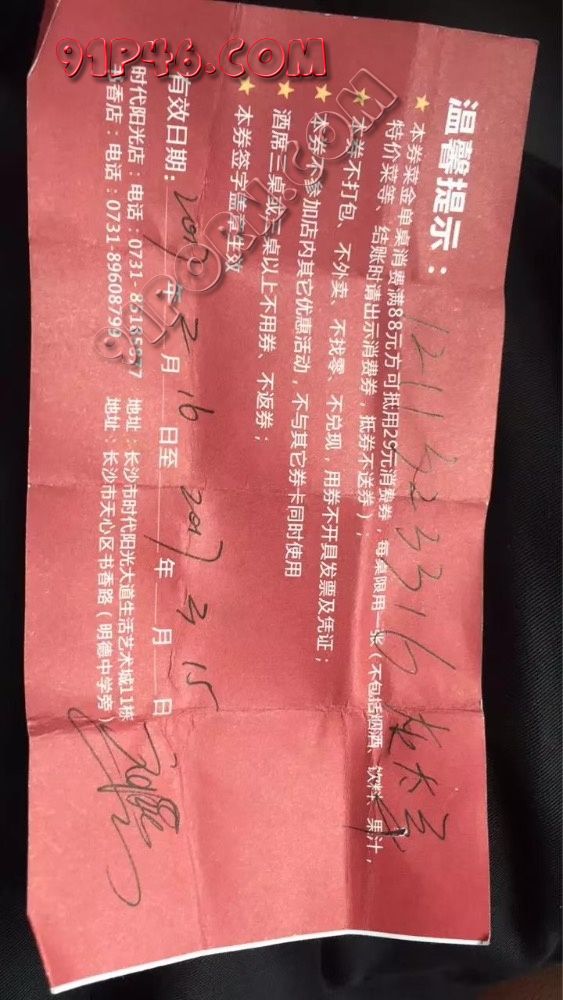 91P46.COM
91PORN.COM
温馨提示：
★ 本券菜金单桌消费满88元方可抵用29元消费券，每桌限用一张（不包括烟酒、饮料、果汁，
特价菜等、结账时请出示消费券，抵券不送券）；
★ 本券不打包、不外卖、不找零、不兑现，用券不开具发票及凭证；
★ 本券不参加店内其它优惠活动，不与其它券卡同时使用
★ 酒席三桌或三桌以上不用券、不返券；
★ 本券签字盖章生效
有效日期：2017年2月16日至2017年3月15日
时代阳光店：电话：0731- 地址：长沙市时代阳光大道生活艺术城11栋
香店：电话：0731-89608799 地址：长沙市天心区书香路（明德中学旁）